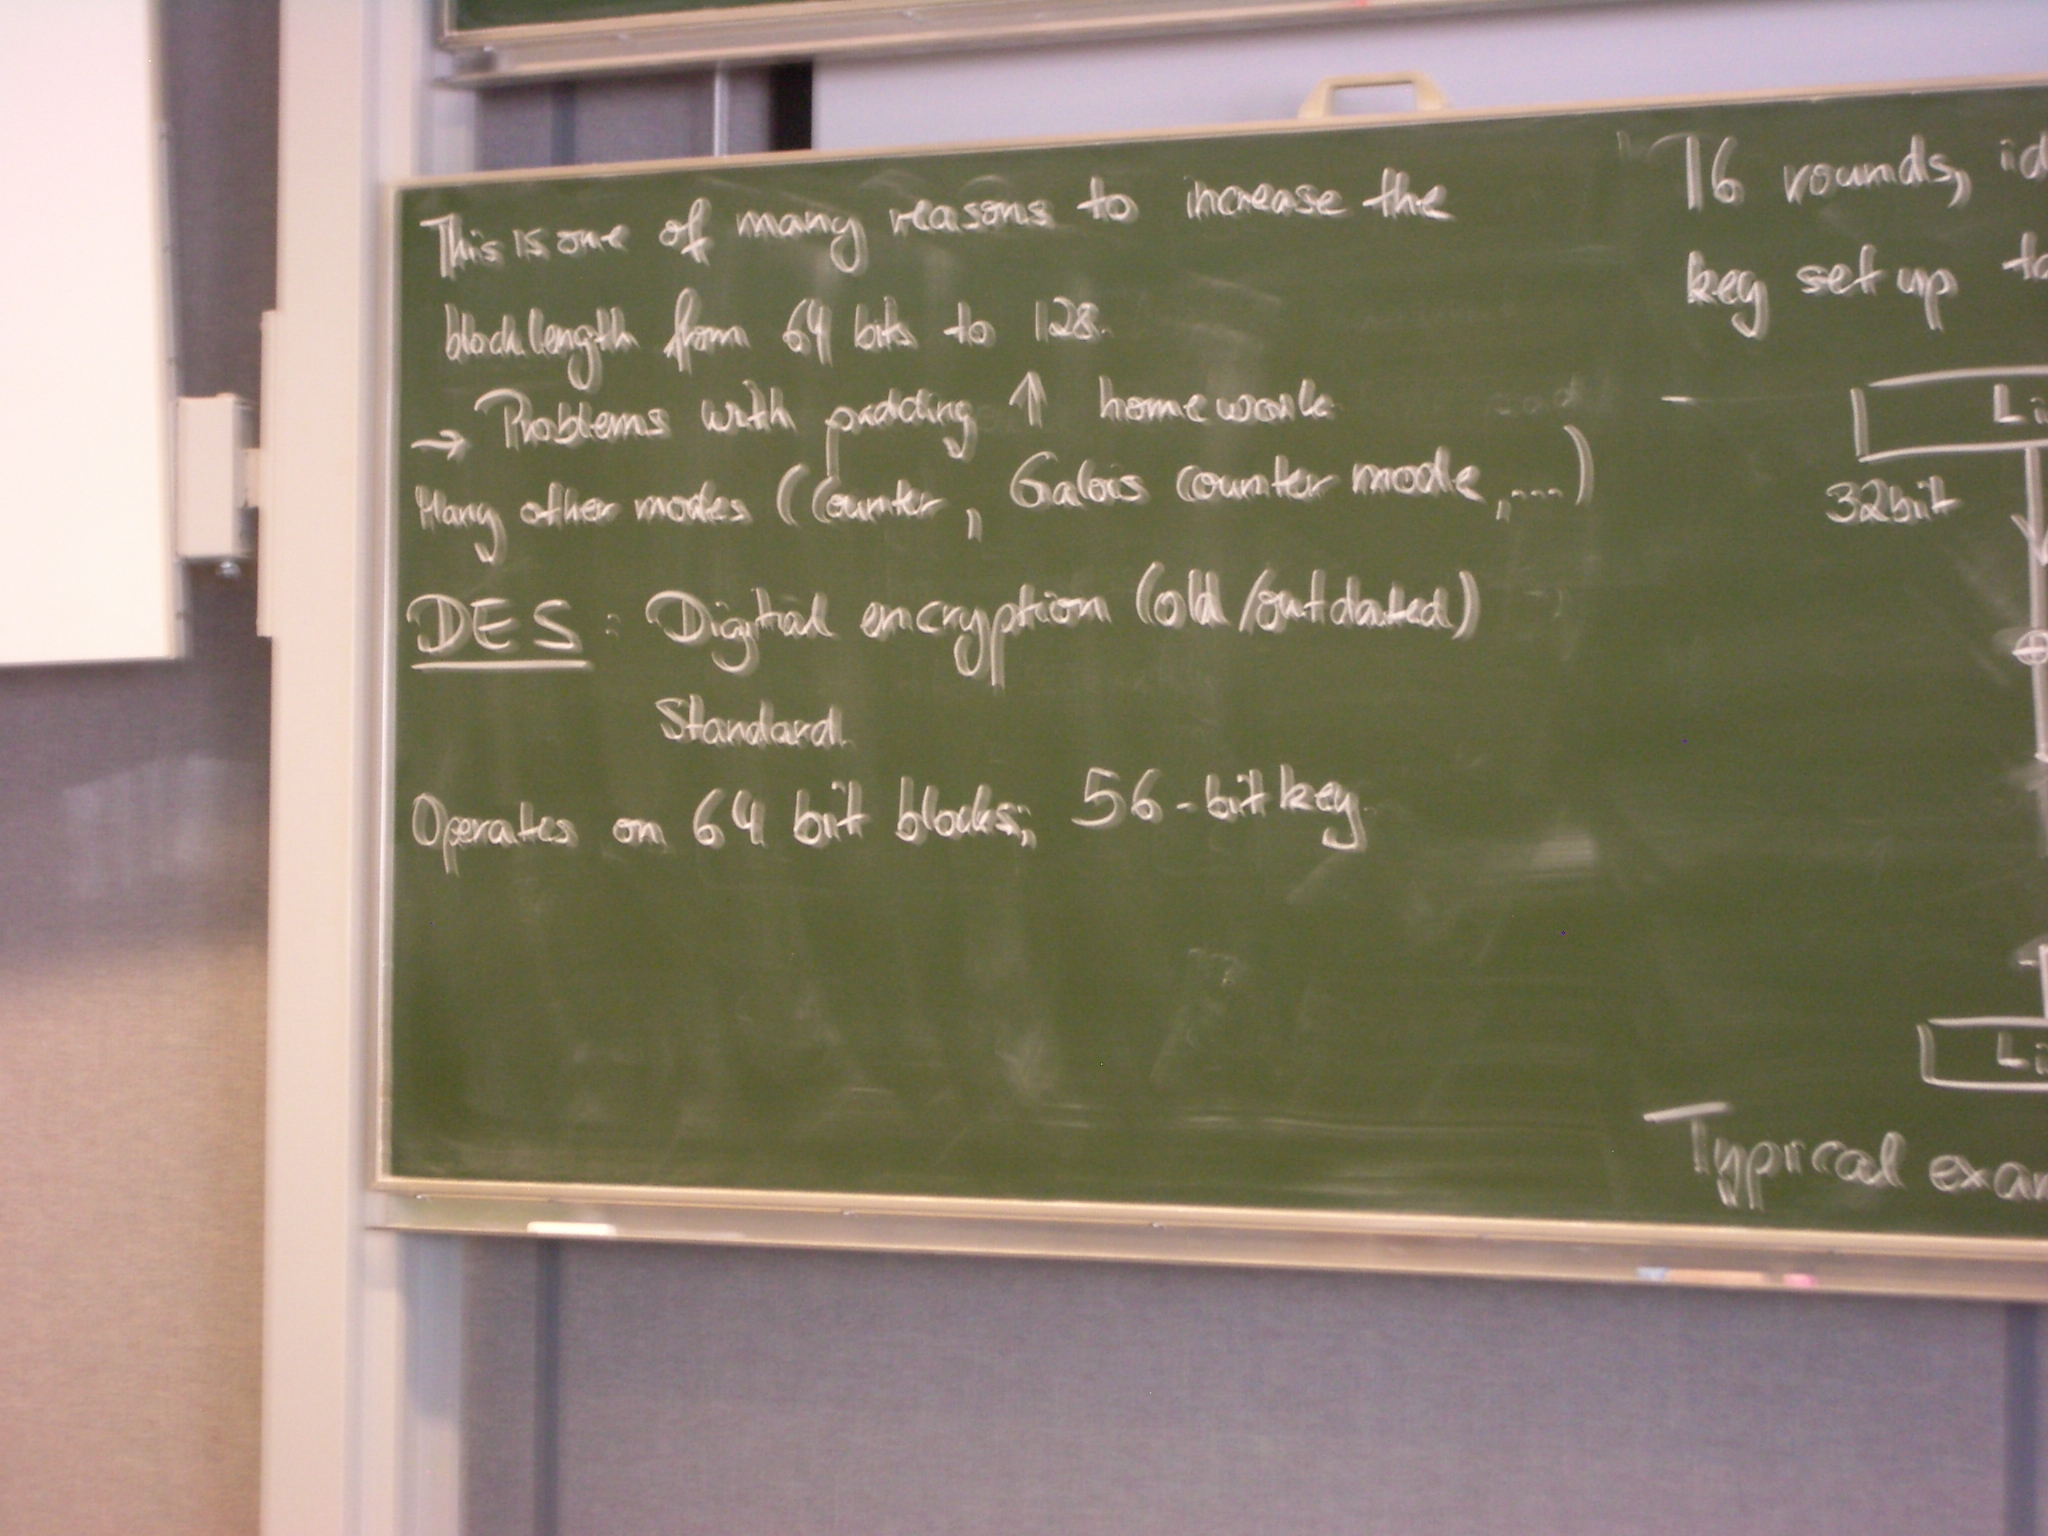 This is one of many reasons to increase the
block length from 64 bits to 128.
→ Problems with padding ↑ homework
Many other modes (Counter, Galois counter mode, ...)
DES: Digital encryption (old/outdated)
Standard.
Operates on 64 bit blocks; 56-bit key.
16 rounds, id
key set up to
Li
32bit
Li
Typical exam